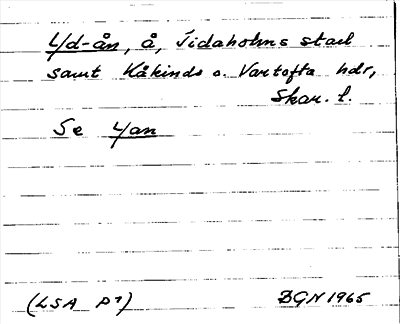 Yd-ån, å, Tidaholms stad
samt Kåkinds o. Vartofta hdr,
Skar. l.
Se Yan
(LSA P⁷) BGN 1965